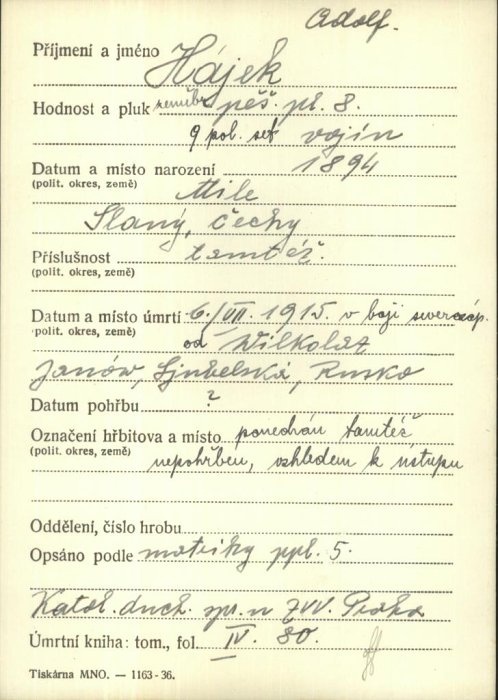 Adolf.
Příjmení a jméno Hájek
Hodnost a pluk zeměbr. pěš. pl. 8.
9 pol. set vojín
Datum a místo narození 1894
(polit. okres, země) Mile
Slaný, Čechy
Příslušnost tamtéž.
(polit. okres, země)
Datum a místo úmrtí 6./VII. 1915. v boji
polit. okres, země) od Wilkolaz
Janów, Ljubelská, Rusko
Datum pohřbu ?
Označení hřbitova a místo ponechán tamtéž
(polit. okres, země) nepohřben, vzhledem k ústupu
Oddělení, číslo hrobu
Opsáno podle matriky ppl. 5.
Katol. duch. spr. u ZVV. Praha
Úmrtní kniha: tom., fol. IV. 80.
Tiskárna MNO. — 1163-36.